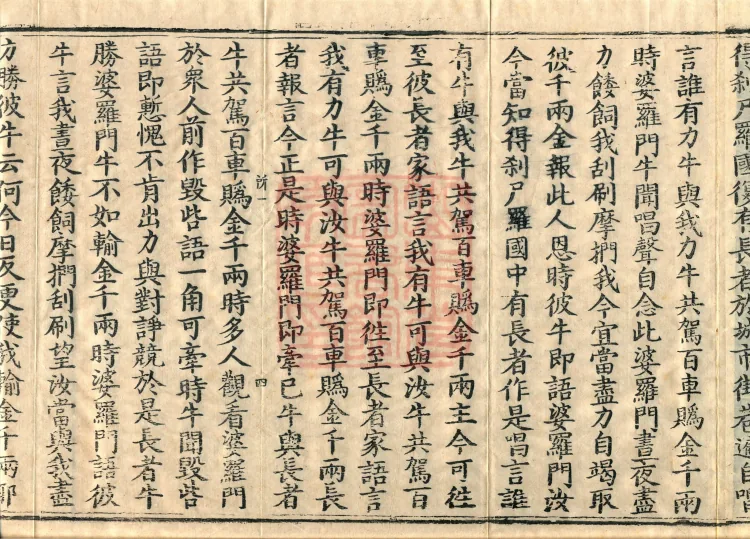 得剎尸羅國復有長者於城市街巷遍自唱
言誰有力牛與我力牛共駕百車䞈金千兩
時婆羅門牛聞唱聲自念此婆羅門晝夜盡
力餧飼我刮刷摩捫我今宜當盡力自竭取
彼千兩金報此人恩時彼牛即語婆羅門汝
今當知得剎尸羅國中有長者作是唱言誰
有牛與我牛共駕百車䞈金千兩主今可往
至彼長者家語言我有牛可與汝牛共駕百
車䞈金千兩時婆羅門即往至長者家語言
我有力牛可與汝牛共駕百車䞈金千兩長
者報言今正是時婆羅門即牽己牛與長者
一 四
牛共駕百車䞈金千兩時多人觀看婆羅門
於眾人前作毀呰語一角可牽時牛聞毀呰
語即慙愧不肯出力與對諍競於是長者牛
勝婆羅門牛不如輸金千兩時婆羅門語彼
牛言我晝夜餧飼摩捫刮刷望汝當與我盡
力勝彼牛云何今日反更使我輸金千兩耶